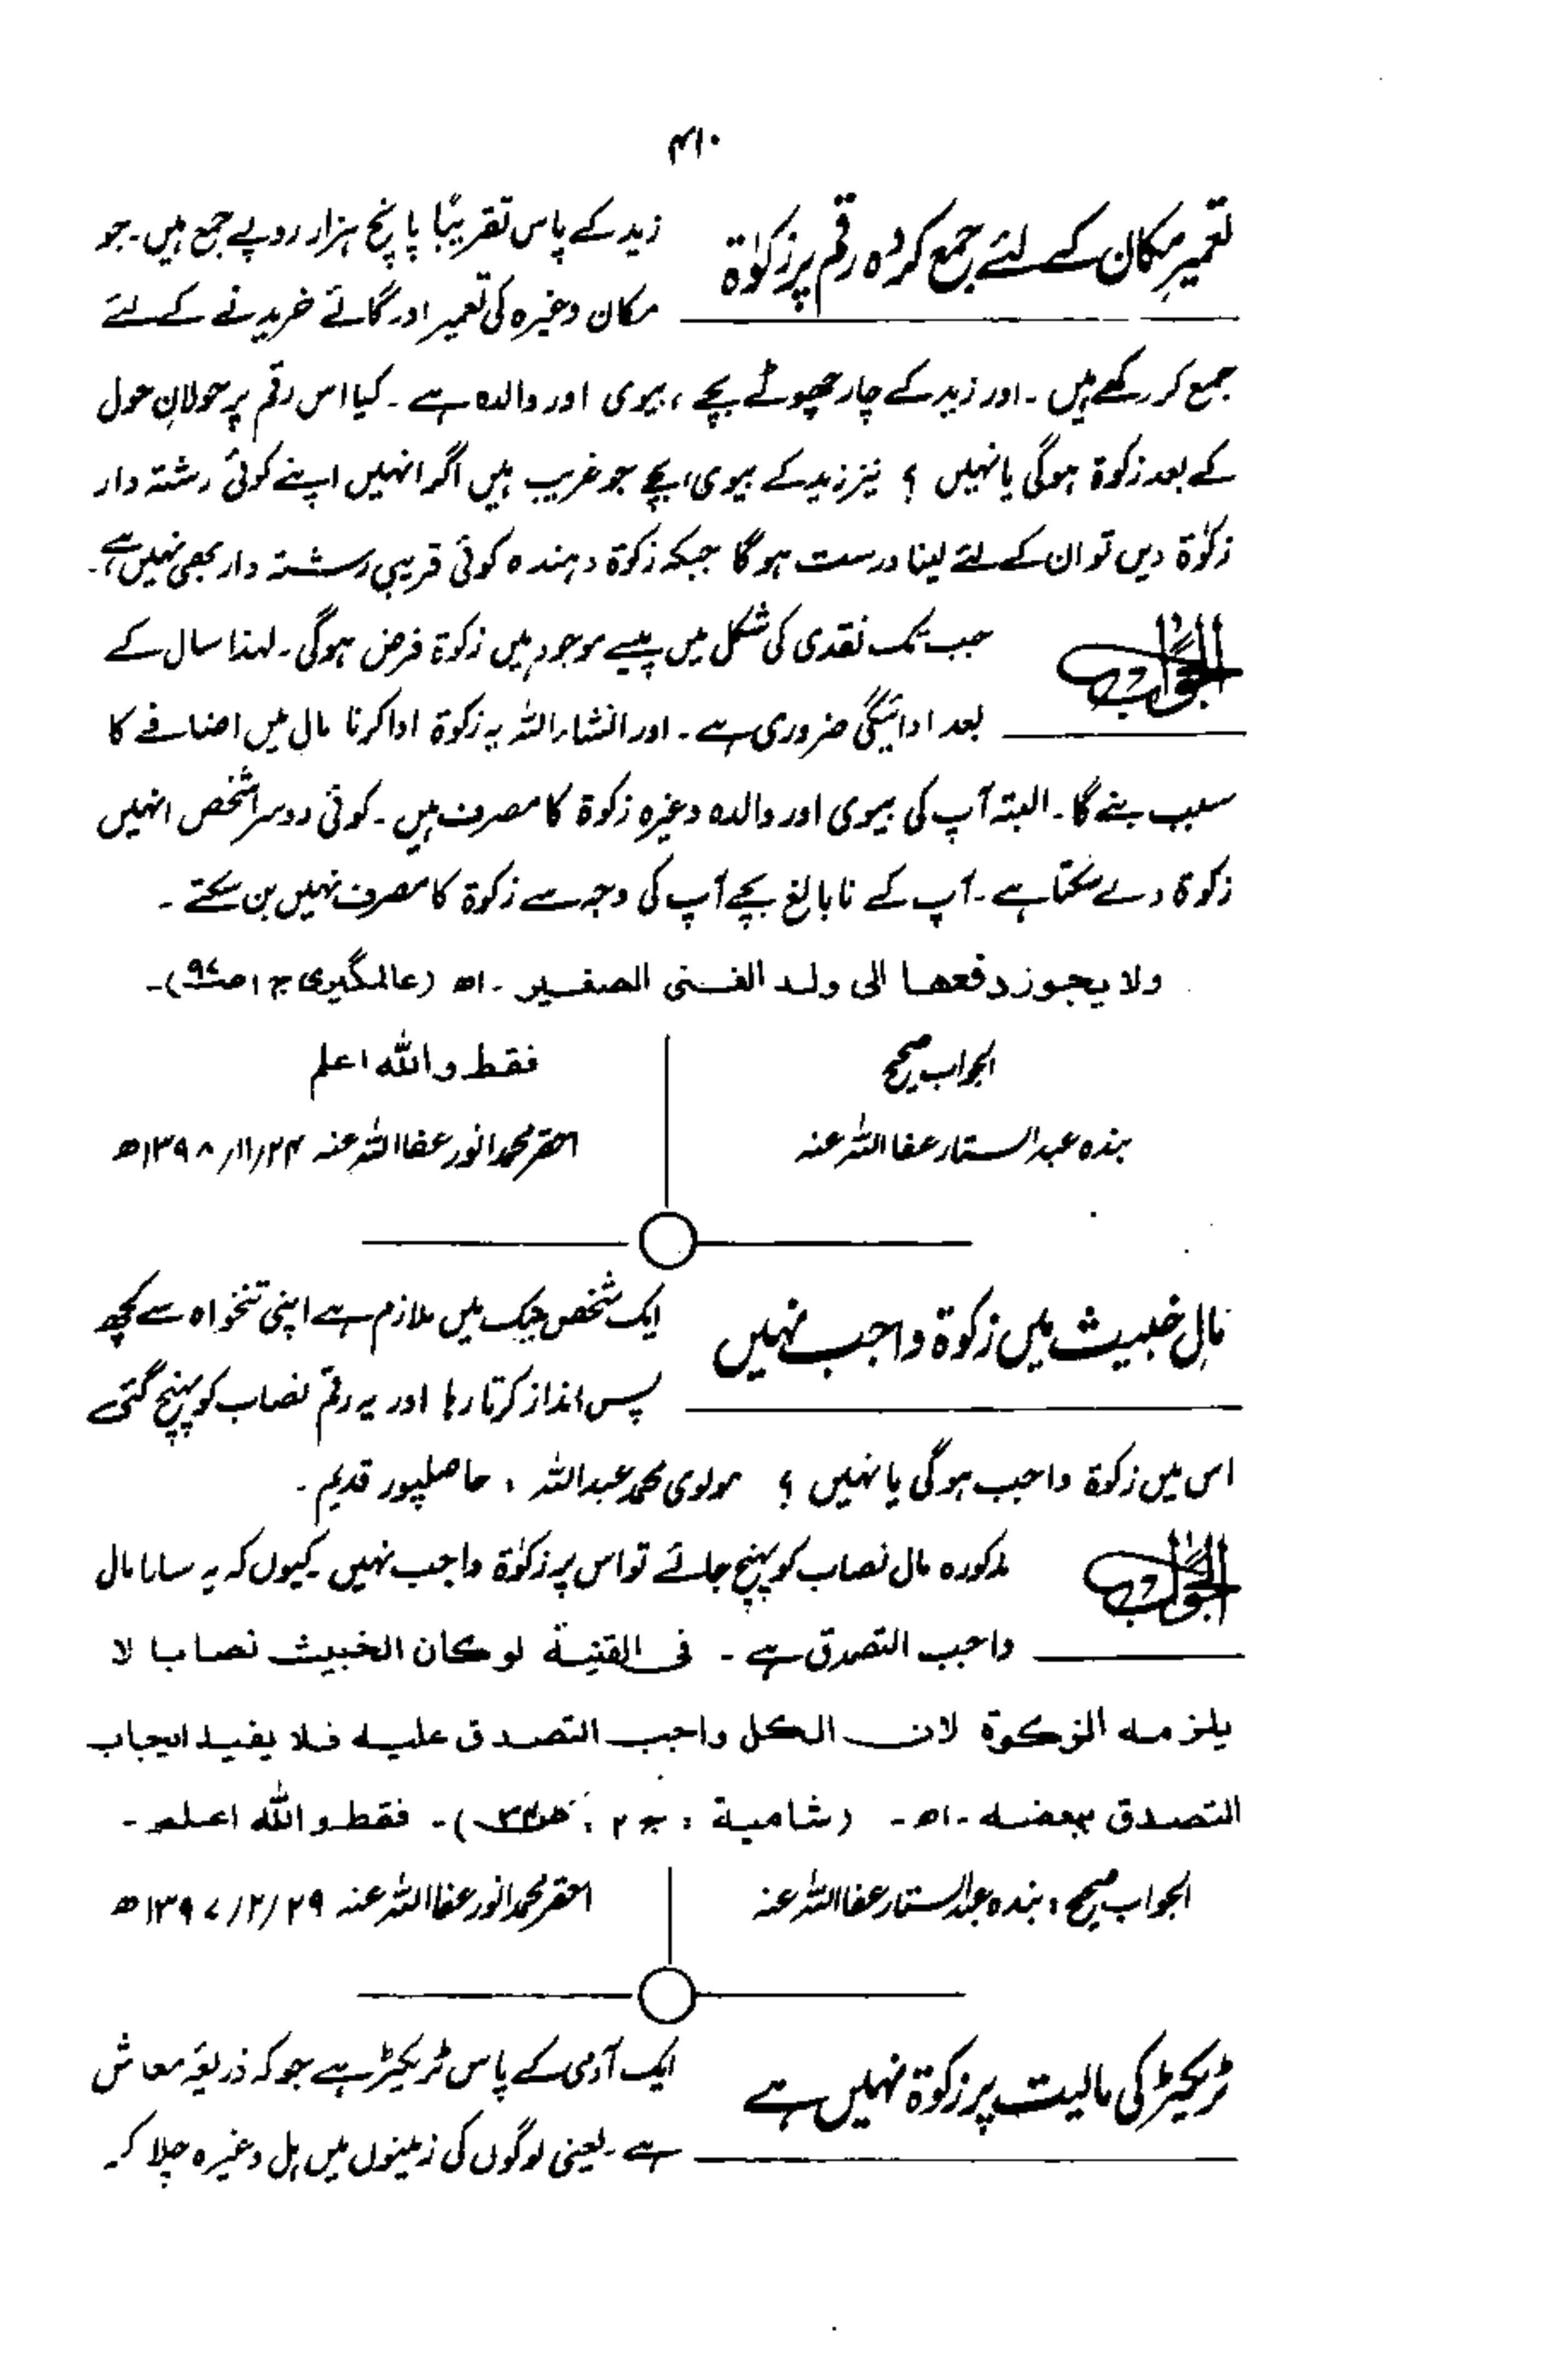 ۴۱۰
تعمیرِ مکان کے لئے جمع کردہ رقم پر زکوٰۃ
زید کے پاس تقریبًا پانچ ہزار روپے جمع ہیں۔ جو
مکان وغیرہ کی تعمیر اور گائے خریدنے کے لئے
جمع کر رکھے ہیں۔ اور زید کے چار چھوٹے بچے، بیوی اور والدہ ہے۔ کیا اس رقم پر حولانِ حول
کے بعد زکوۃ ہوگی یا نہیں؟ نیز زید کے بیوی، بچے جو غریب ہیں اگر انہیں اپنے کوئی رشتہ دار
زکوٰۃ دیں تو ان کے لئے لینا درست ہوگا جبکہ زکوۃ دہندہ کوئی قریبی رشتہ دار بھی نہیں ہے۔
الجواب
جب تک نقدی کی شکل میں پیسے موجود ہیں زکوۃ فرض ہوگی۔ لہذا سال کے
بعد ادائیگی ضروری ہے۔ اور انشاء اللہ یہ زکوۃ ادا کرنا مال میں اضافے کا
سبب بنے گا۔ البتہ آپ کی بیوی اور والدہ وغیرہ زکوۃ کا مصرف ہیں۔ کوئی دوسرا شخص انہیں
زکوۃ دے سکتا ہے۔ آپ کے نابالغ بچے آپ کی وجہ سے زکوۃ کا مصرف نہیں بن سکتے۔
ولا یجوز دفعها الی ولد الغنی الصغیر۔ اھ (عالمگیری ج ۱ ص۹۷)۔
الجواب صحیح
فقط واللہ اعلم
بندہ عبدالستار عفا اللہ عنہ
احقر محمد انور عفا اللہ عنہ ۲۴/۱۱/۱۳۹۸ھ
مالِ خبیث میں زکوۃ واجب نہیں
ایک شخص بنک میں ملازم ہے اپنی تنخواہ سے کچھ
پس انداز کرتا رہا اور یہ رقم نصاب کو پہنچ گئی
اس میں زکوۃ واجب ہوگی یا نہیں؟ مولوی محمد عبداللہ، حاصلپور قدیم۔
الجواب
مذکورہ مال نصاب کو پہنچ جائے تو اس پر زکوٰۃ واجب نہیں۔ کیوں کہ یہ سارا مال
واجب التصدق ہے۔ فی القنیة لو کان الخبیث نصابا لا
یلزمه الزکوۃ لان الکل واجب التصدق علیه فلا یفید ایجاب
التصدق ببعضه۔ اھ۔ (شامیة : ج ۲ :)۔ فقط واللہ اعلم۔
الجواب صحیح : بندہ عبدالستار عفا اللہ عنہ
احقر محمد انور عفا اللہ عنہ ۲۹/۲/۱۳۹۷ھ
ٹریکٹر کی مالیت پر زکوۃ نہیں ہے
ایک آدمی کے پاس ٹریکٹر ہے جو کہ ذریعۂ معاش
ہے۔ یعنی لوگوں کی زمینوں میں ہل وغیرہ چلا کر